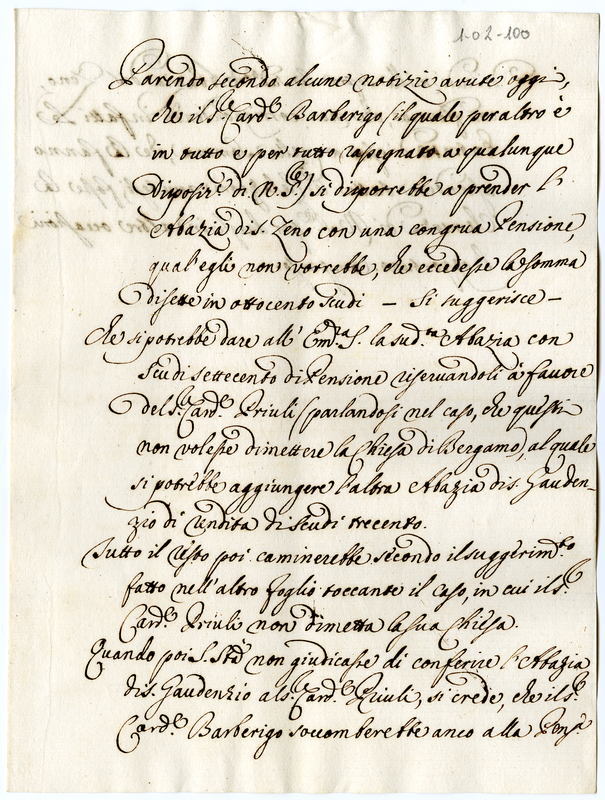 1-02-100
Parendo secondo alcune notizie avute oggi,
che il S.r Card.e Barberigo (il quale per altro è
in tutto e per tutto rassegnato a qualunque
Disposiz.e di N. S.re) si disporrebbe a prender l'
Abazia di S. Zeno con una congrua Pensione,
qual'egli non vorrebbe, che eccedesse la somma
di sette in ottocento scudi — Si suggerisce —
Che si potrebbe dare all' Em.za S. la sud.ta Abazia con
scudi settecento di Pensione riservandoli à favore
del S.r Card.e Priuli (parlandosi nel caso, che questi
non volesse dimettere la Chiesa di Bergamo) al quale
si potrebbe aggiungere l'altra Abazia di S. Gauden-
zio di rendita di scudi trecento.
Tutto il resto poi caminerebbe secondo il suggerim.to
fatto nell'altro foglio toccante il caso, in cui il S.r
Card.e Priuli non dimetta la sua Chiesa.
Quando poi S. S.tà non giudicasse di conferire l'Abazia
di S. Gaudenzio al S.r Card.e Priuli, si crede, che il S.r
Card.e Barberigo soccomberebbe anco alla